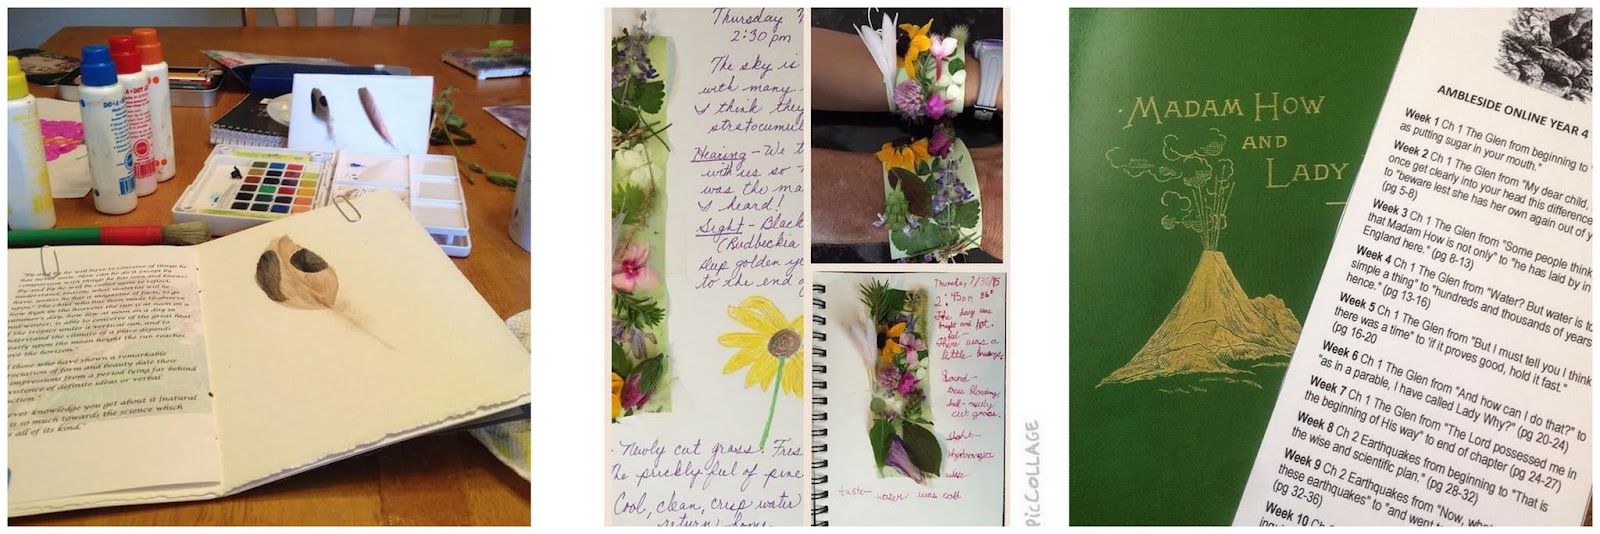 "By and by he will have to conceive of things he
has never seen. How can he do it except by
comparison with things he has seen and knows?
By and by he will be called upon to reflect,
understand, reason; what material will he
have, unless he has a magazine of facts to go
upon? The child who has been made to observe
how high in the heavens the sun is at noon on a
summer's day, how low at noon on a day in
mid-winter, is able to conceive of the great heat
of the tropics under a vertical sun, and to
understand the climate of a place depends
greatly upon the mean height the sun reaches
above the horizon."
those who have shown a remarkable
appreciation of form and beauty date their
impressions from a period lying far behind
existence of definite ideas or verbal
ever knowledge you get about it [natural
is so much towards the science which
all of its kind."
DO•A•DOT
Thursday 7
2:30 pm
The sky is
with many
I think they
stratocumul
Hearing - We t
with us so
was the ma
I heard!
Sight - Black
(Rudbeckia
deep golden ye
to the end
Newly cut grass. Fres
The prickly feel of pine
Cool, clean, crisp water
return home
Thursday 7/30/15
2:45pm 86°
The day was
bright and hot.
There was a
little breeze
Sound-
trees blowing
newly
cut grass.
Sight-
Hydrangea
taste- water was cold
PICCOLLAGE
MADAM HOW
AND
LADY
AMBLESIDE ONLINE YEAR 4
Week 1 Ch 1 The Glen from beginning to "
as putting sugar in your mouth."
Week 2 Ch 1 The Glen from "My dear child,
once get clearly into your head this difference
to "beware lest she has her own again out of y
(pg 5-8)
Week 3 Ch 1 The Glen from "Some people think
that Madam How is not only" to "he has laid by in
England here." (pg 8-13)
Week 4 Ch 1 The Glen from "Water? But water is to
simple a thing" to "hundreds and thousands of years
hence." (pg 13-16)
Week 5 Ch 1 The Glen from "But I must tell you I think
there was a time" to "if it proves good, hold it fast."
(pg 16-20
Week 6 Ch 1 The Glen from "And how can I do that?" to
"as in a parable, I have called Lady Why?" (pg 20-24)
Week 7 Ch 1 The Glen from "The Lord possessed me in
the beginning of His way" to end of chapter (pg 24-27)
Week 8 Ch 2 Earthquakes from beginning to "That is
the wise and scientific plan." (pg 28-32)
Week 9 Ch 2 Earthquakes from "Now, wh
these earthquakes" to "and went
(pg 32-36)
Week 10 Ch